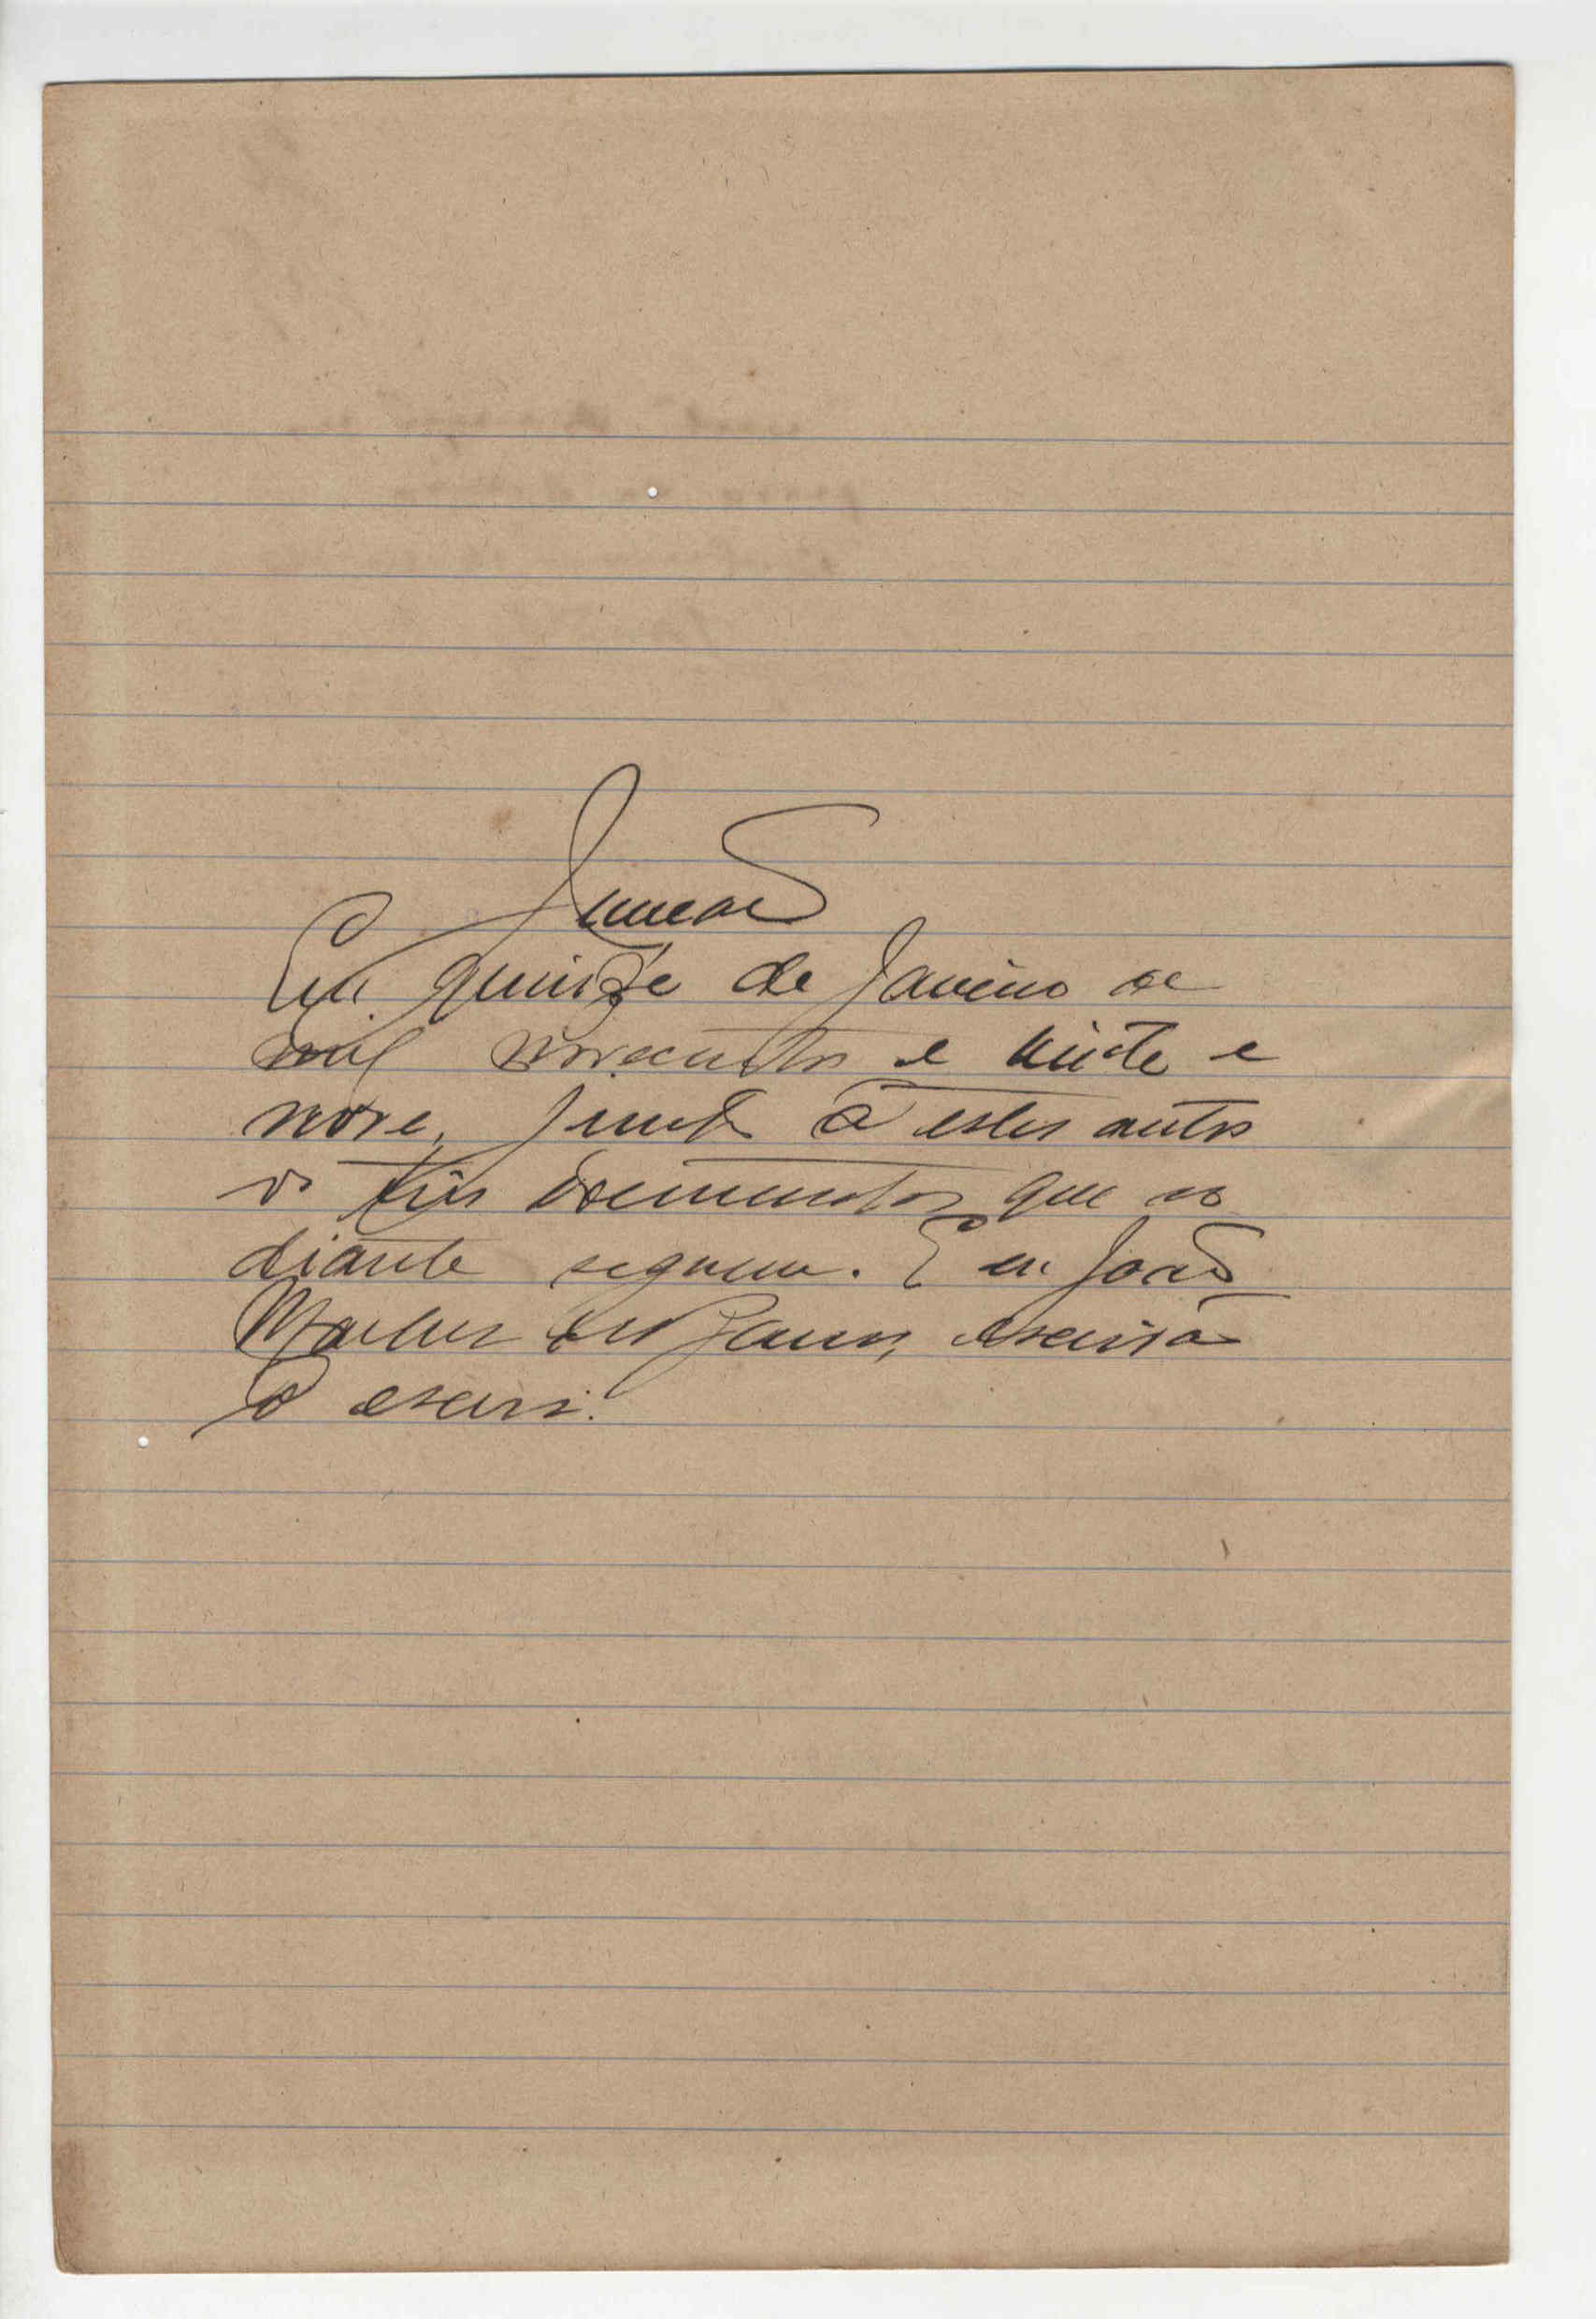 Juncção
Em quinze de Janeiro de
mil novecentos e vinte e
nove, junto a estes autos
os tres documentos que ao
diante seguem. E eu João
escrivão
o escrevi.